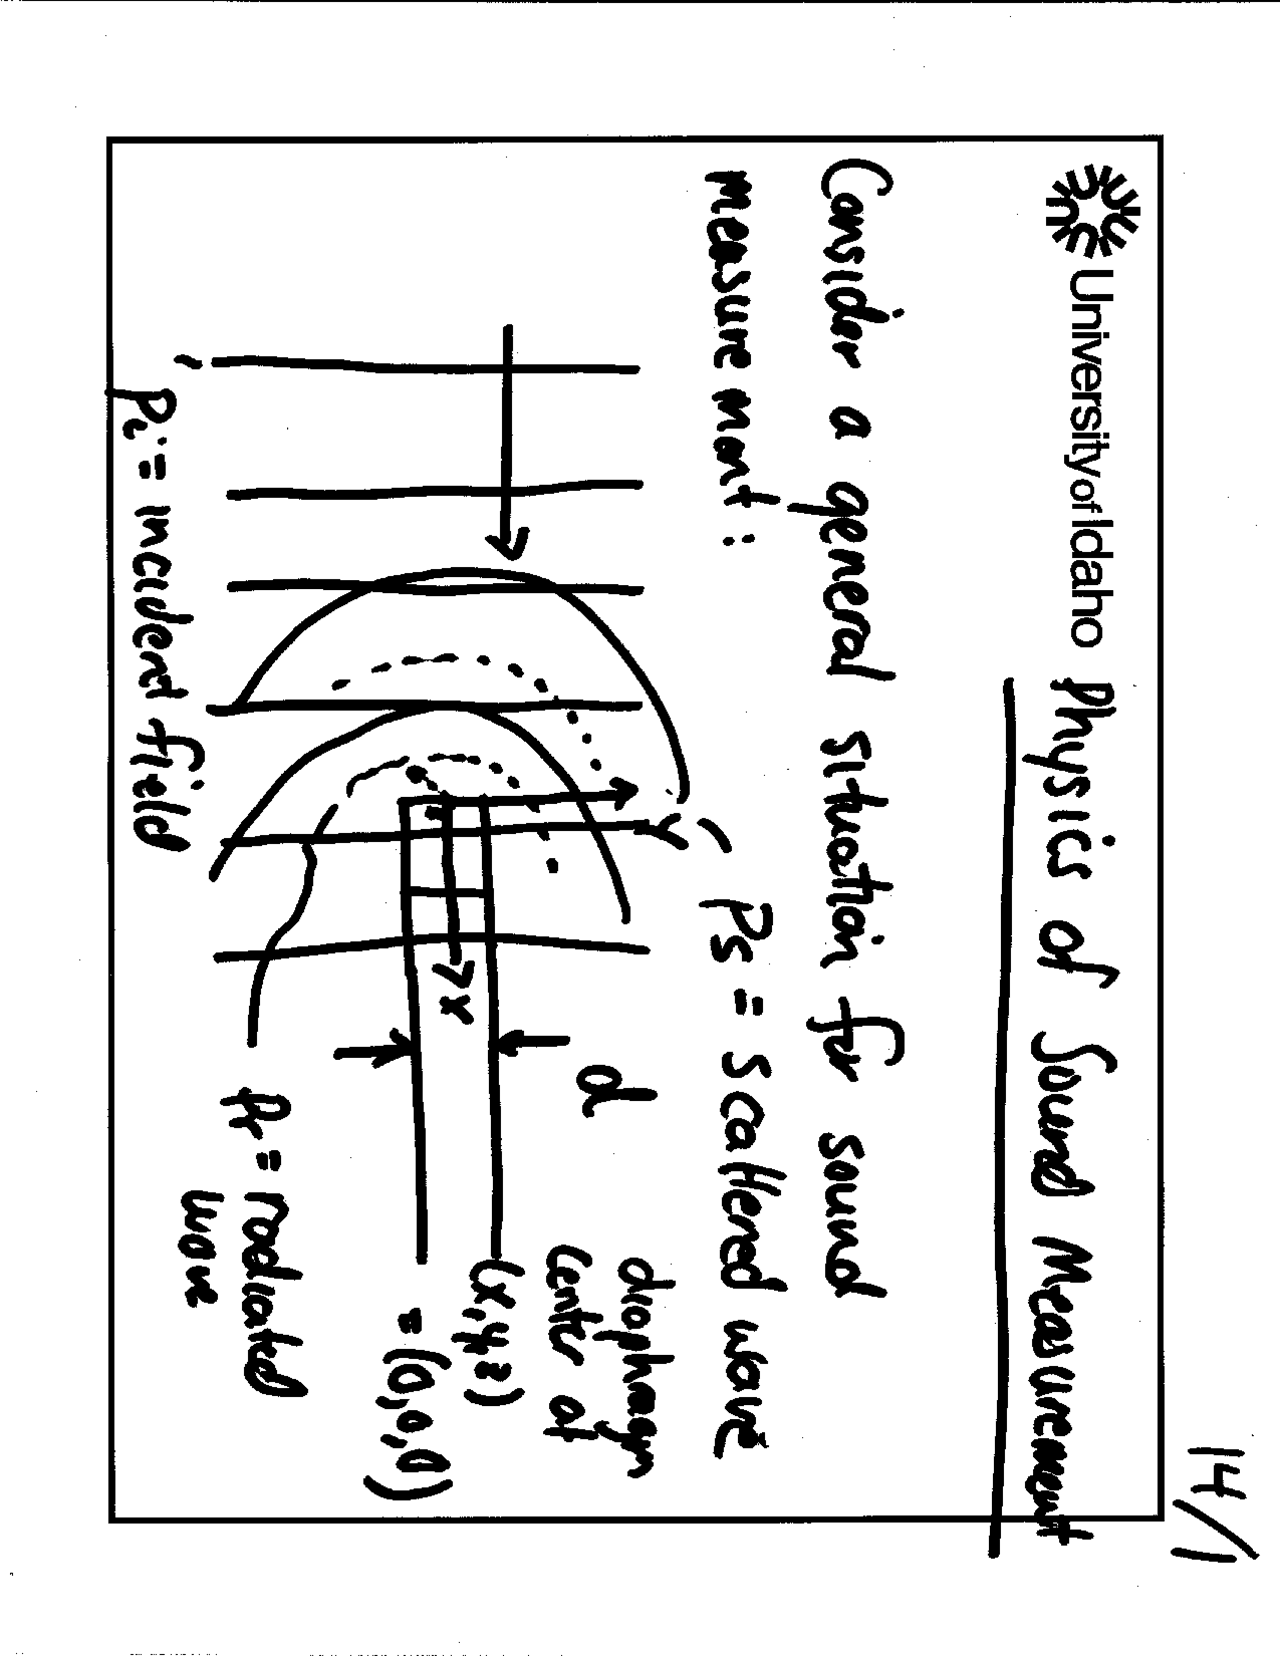 14/1
University of Idaho Physics of Sound Measurement
Consider a general situation for sound
measurement :
Ps = scattered wave
y
x
d
diaphragm
center at
(x,y,z)
= (0,0,0)
Pi = incident field
Pr = radiated
wave